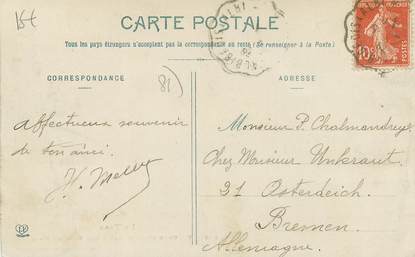 15€
CARTE POSTALE
Tous les pays étrangers n'acceptent pas la correspondance au recto (Se renseigner à la Poste).
CORRESPONDANCE
ADRESSE
81
10
Affectueux souvenir
de ton ami.
H.
Monsieur P. Chalmandrey
Chez Monsieur Unkraut
31 Osterdeich.
Bremen.
Allemagne.